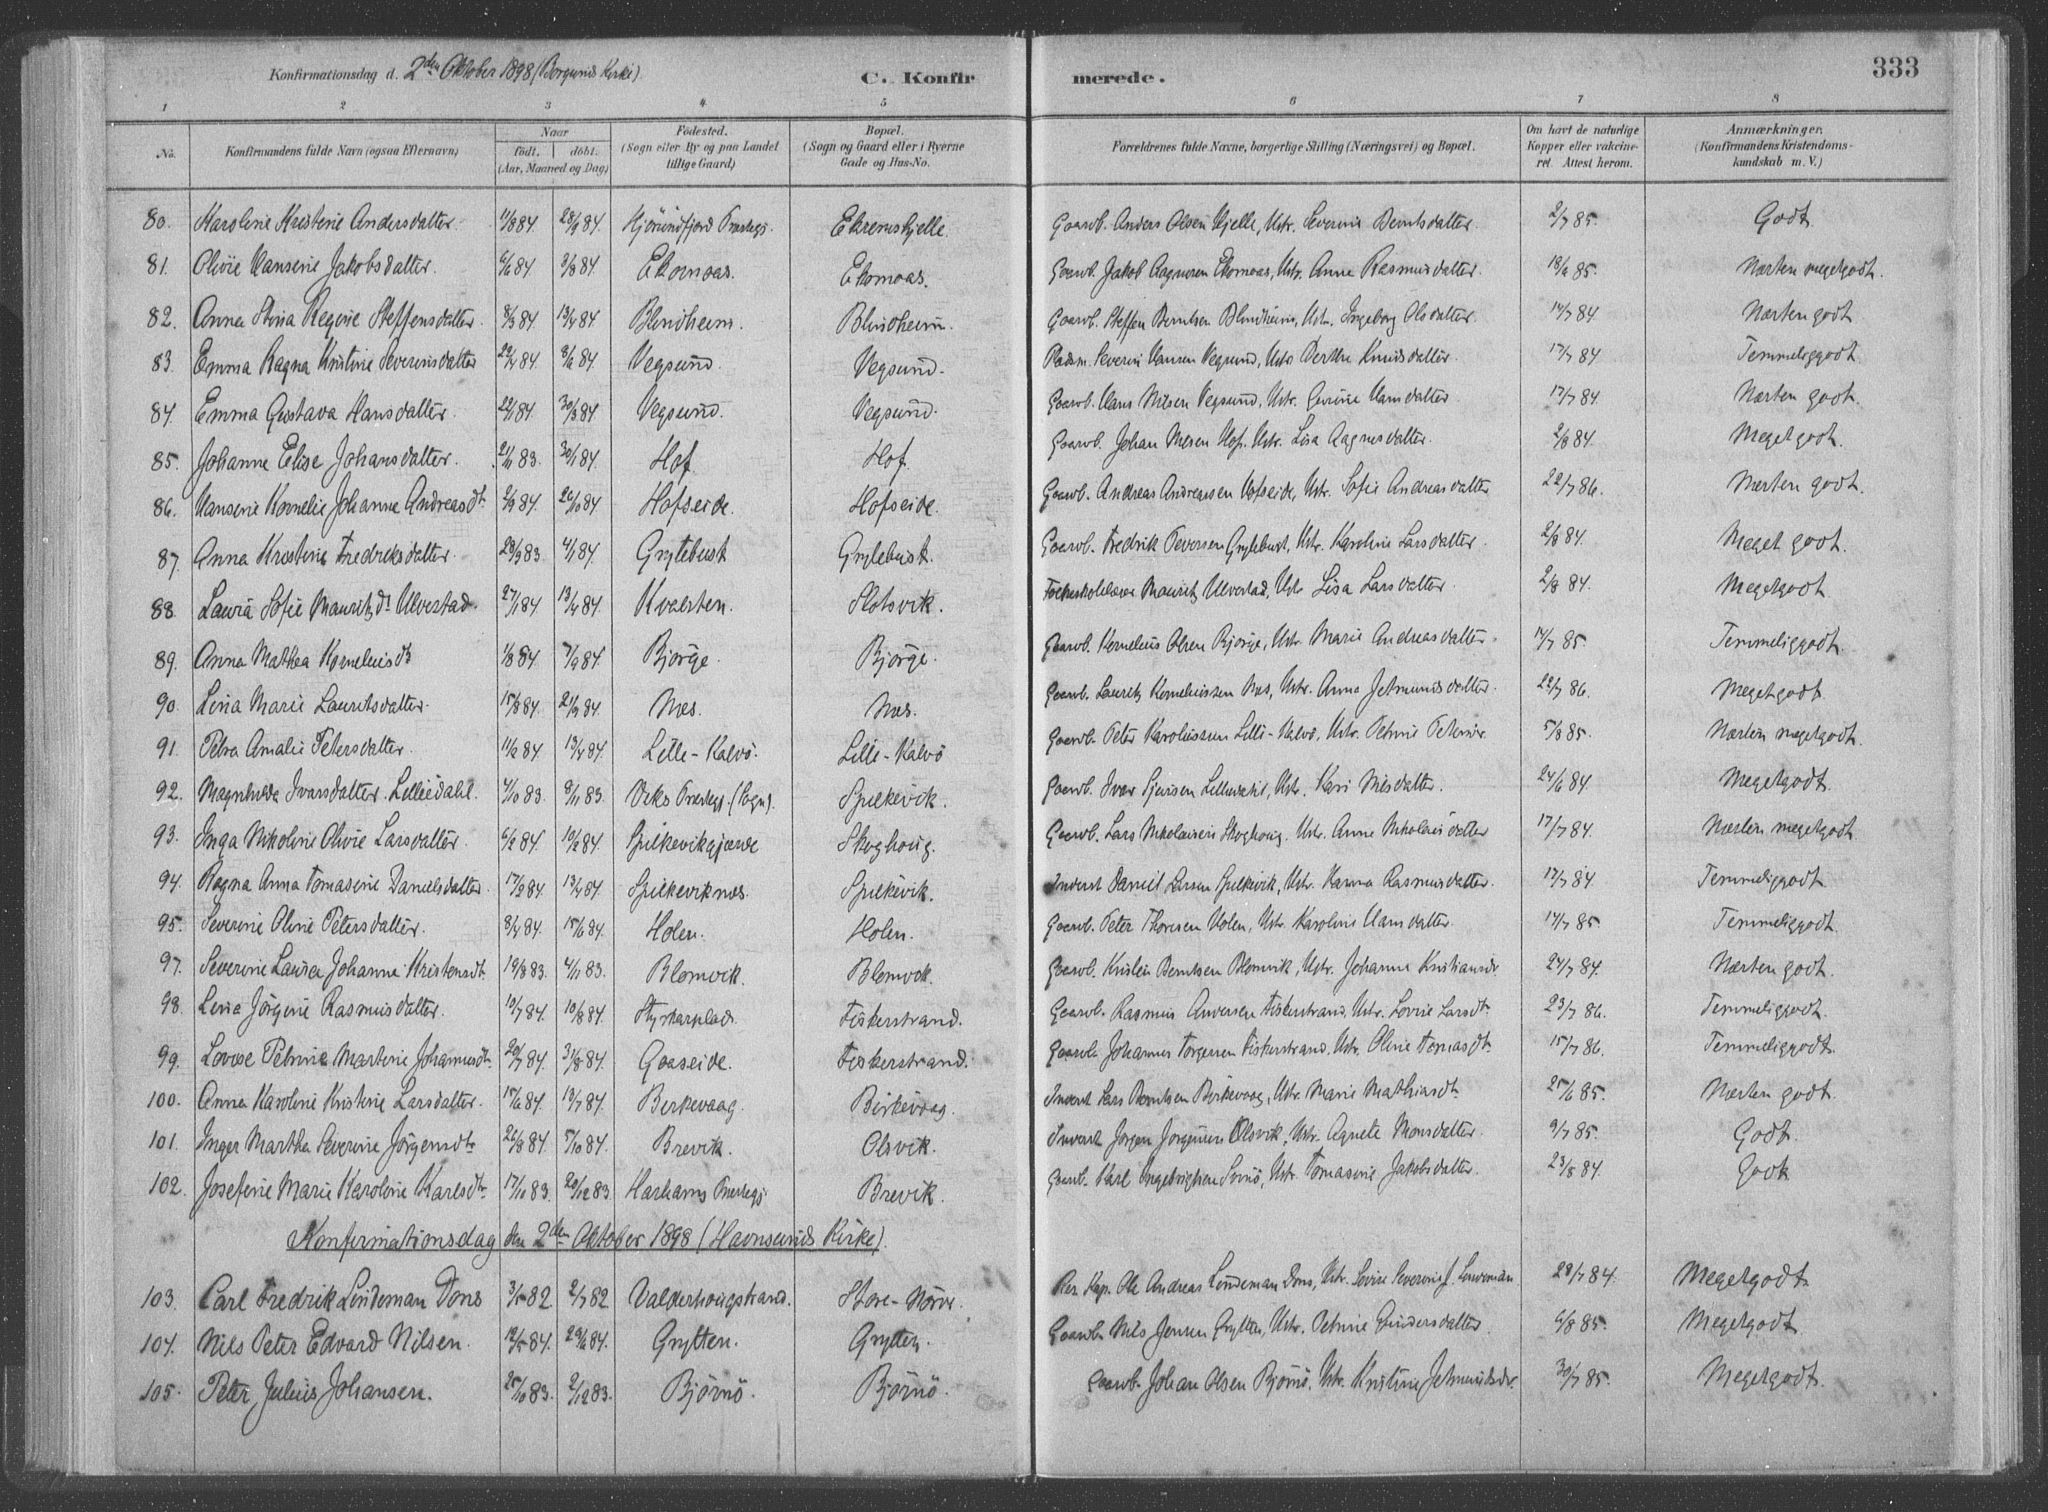 Konfirmationsdag d. 2den Oktober 1898 (Borgunds Kirke). C. Konfirmerede. 333
1 2 3 4 5 6 7 8
No. Konfirmandens fulde Navn (ogsaa Efternavn) Naar født. døbt. (Aar, Maaned og Dag) Fødested. (Sogn eller By og paa Landet tillige Gaard) Bopæl. (Sogn og Gaard eller i Byerne Gade og Hus-No. Forældrenes fulde Navne, borgerlige Stilling (Næringsvei) og Bopæl. Om havt de naturlige Kopper eller vakcineret. Attest herom. Anmærkninger. (Konfirmandens Kristendomskundskab m. V.)
80. Karoline Kristine Andersdatter. 11/8 84 28/9 84. Hjörundfjord Præstegj. Ekremskjelle. Gaardb. Anders Olsen Kjelle, Ustr. Severine Berntsdatter. 2/7 85. Godt.
81. Olivie Hansine Jakobsdatter. 6/6 84 3/8 84. Ekornæs. Ekornæs. Gaardb. Jakob Aagesen Ekornæs, Ustr. Anne Rasmusdatter. 18/6 85. Næsten megetgodt.
82. Anna Stina Regine Steffensdatter. 8/3 84 13/4 84 Blindheim. Blindheim. Gaardb. Steffen Berntsen Blindheim, Ustr. Ingeborg Olsdatter. 14/7 84. Næsten godt.
83. Emma Ragna Kristine Severinsdatter 22/4 84 8/6 84. Vegsund. Vegsund. Pladsm. Severin Hansen Vegsund, Ustr. Berthe Knudsdatter. 17/7 84 Temmeliggodt.
84. Emma Gustava Hansdatter. 29/1 84 30/3 84 Vegsund. Vegsund. Gaardb. Hans Nilsen Vegsund, Ustr. Gurine Hansdatter. 17/7 84. Næsten godt.
85. Johanne Elise Johansdatter. 21/11 83. 20/1 84. Hof. Hof. Gaardb. Johan Nilsen Hof. Ustr. Lisa Aagesdatter. 2/8 84. Megetgodt.
86. Hansine Kornelie Johanne Andreasdt. 2/9 84. 26/10 84 Hofseide. Hofseide. Gaardb. Andreas Andreassen Hofseide, Ustr. Sofie Andreasdatter 22/7 86. Næsten godt.
87. Anna Kristine Fredriksdatter. 23/9 83 4/1 84. Grytebust Grytebust. Gaardb. Fredrik Seversen Grytebust, Ustr. Karoline Larsdatter. 2/8 84. Meget godt.
88. Laura Sofie Mauritzdt. Ulvestad. 27/1 84 13/4 84. Kvasten. Slotsvik. Folkeskolelærer Mauritz Ulvestad, Ustr. Lisa Larsdatter. 2/8 84. Megetgodt.
89. Anna Mathea Korneliusdt. 1/8 84 7/9 84. Bjørge. Bjørge. Gaardb. Kornelius Olsen Bjørge, Ustr. Marie Andreasdatter. 14/7 85. Temmeliggodt.
90. Lina Marie Lauritsdatter. 15/8 84. 21/9 84. Næs. Næs. Gaardb. Lauritz Korneliussen Næs, Ustr. Anna Jetmundsdatter. 22/7 86. Megetgodt.
91. Petra Amalie Petersdatter. 11/2 84 13/4 84. Lille-Kalvø. Lille-Kalvø Gaardb. Peter Karoliussen Lille-Kalvø, Ustr. Petrine 5/8 85. Næsten megetgodt.
92. Magnhilda Ivarsdatter Lilliedahl. 4/10 83. 8/11 83. Viks Præstegj. (Sogn). Spilkevik. Gaardb. Ivar Lilliedahl, Ustr. Kari Nilsdatter. 24/6 84. Megetgodt.
93. Inga Nikoline Olivie Larsdatter. 6/2 84. 10/2 84. Spilkevikgjærde Skoghoug. Gaardb. Lars Nikolaisen Skoghoug. Ustr. Anne Nikolaisdatter 17/7 84. Næsten megetgodt.
94. Ragna Anna Tomasine Danielsdatter. 17/2 84 13/4 84 Spilkeviknæs. Spilkevik. Inderst Daniel Larsen Spilkevik, Ustr. Hanna Rasmusdatter. 17/7 84 Temmeliggodt.
95. Severine Oline Petersdatter. 8/4 84. 15/6 84. Holen. Holen. Gaardb. Peter Thoresen Holen, Ustr. Karoline Hansdatter. 14/7 85. Temmeliggodt.
97. Severine Laura Johanne Kristensdt. 19/8 83. 4/11 83. Blomvik. Blomvik. Gaardb. Kristen Berntsen Blomvik, Ustr. Johanne Kristiansdr. 24/7 84. Næsten godt.
98. Lina Jørgine Rasmusdatter. 10/7 84. 10/8 84. Styrkarplads Fiskerstrand. Gaardb. Rasmus Andersen Fiskerstrand, Ustr. Lovise Larsdt. 23/7 86. Temmeliggodt.
99. Lovise Petrine Martine Johannesdt. 20/7 84. 31/8 84. Gaaseide. Fiskerstrand. Gaardb. Johannes Torgersen Fiskerstrand, Ustr. Oline Tomasdt. 15/7 86. Temmeliggodt.
100. Anna Karoline Kristine Larsdatter. 15/6 84. 13/7 84. Birkevaag. Birkevaag. Inderst Lars Berntsen Birkevaag, Ustr. Marie Mathiasdt. 25/6 85. Næsten godt.
101. Inger Martha Severine Jørgensdt. 26/8 84 5/10 84. Brevik. Olsvik. Inderst Jørgen Jørgensen Olsvik, Ustr. Agnete Monsdatter. 9/7 85. Godt.
102. Josefine Marie Karoline Karlsdt. 17/10 83. 20/12 83. Harhams Præstegj. Brevik. Gaardb. Karl Ingebrigtsen Ustr. Tomasine Jakobsdatter. 23/8 84 Godt
Konfirmationsdag den 2den Oktober 1898 (Havnsunds Kirke).
103. Carl Fredrik Lindeman Dons 3/5 82. 2/7 82. Valderhougstrand. Store-Nørve. Res. Kap. Ole Andreas Lindeman Dons, Ustr. Lovise Severine J. 29/7 84. Megetgodt.
104. Nils Peter Edvard Nilsen. 12/5 84. 29/6 84. Grytten. Grytten. Gaardb. Nils Jensen Grytten, Ustr. Petrine 6/8 85. Megetgodt.
105. Peter Julius Johansen. 25/10 83. 2/12 83. Bjørnø Bjørnø. Gaardb. Johan Olsen Bjørnø, Ustr. Kristine Jetmundsdr. 30/7 85. Megetgodt.